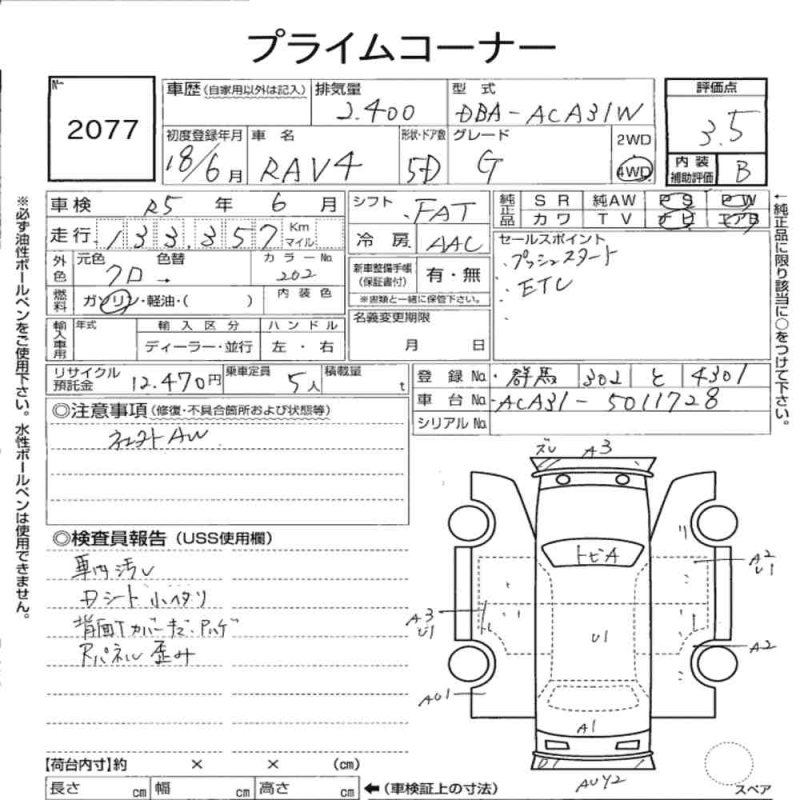 プライムコーナー
No. 2077
車歴(自家用以外は記入) 排気量 2.400 型式 DBA-ACA31W
評価点 3.5
初度登録年月 18/6月 車名 RAV4 形状・ドア数 5D グレード G 2WD 4WD
内装補助評価 B
車検 R5年 6月 シフト FAT
純正品 SR 純AW PS PW
カワ TV ナビ エアB
走行 133.357 Km マイル 冷房 AAC
セールスポイント
プッシュスタート
ETC
外色 元色 クロ → 色替 カラーNo. 202
新車整備手帳(保証書付) 有・無
※書類と一緒に保管下さい。
燃料 ガソリン・軽油・( ) 内装色
名義変更期限
月 日
輸入車用 年式 輸入区分 ハンドル
ディーラー・並行 左・右
リサイクル預託金 12.470円 乗車定員 5人 積載量 t
登録No. 群馬 302 と 4301
車台No. ACA31-5011728
シリアルNo.
◎注意事項(修復・不具合箇所および状態等)
AW
◎検査員報告(USS使用欄)
車内汚レ
Dシート小ヘタリ
背面Tカバーキズ・ハゲ
Rパネル歪み
ズレ A3
トビA
A2
U1
A3
U1
U1
A2
AU1
A1
AUY2
スペア
【荷台内寸】約 × × (cm)
長さ cm 幅 cm 高さ cm ←(車検証上の寸法)
※必ず油性ボールペンをご使用下さい。水性ボールペンは使用できません。
←純正品に限り該当に○をつけて下さい。